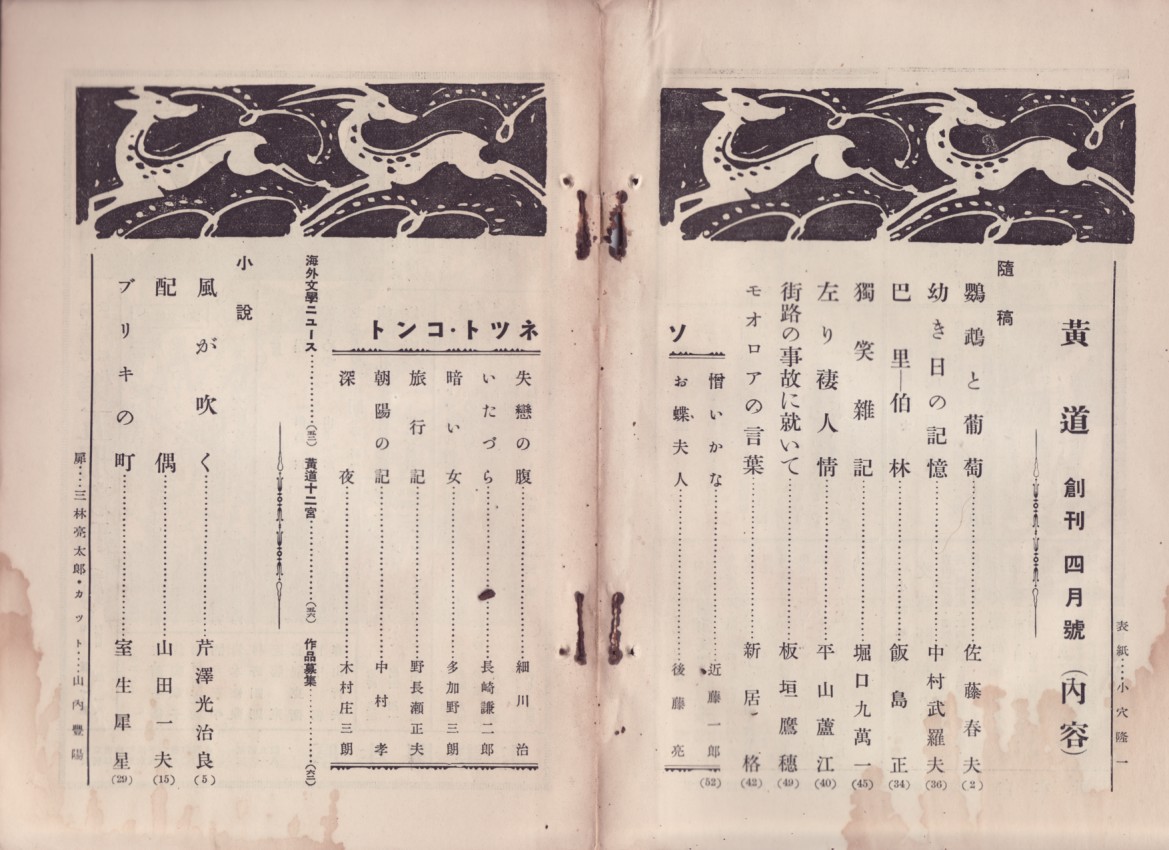 表紙…小穴隆一
黄道 創刊 四月號 (内容)
隨稿
鸚鵡と葡萄……佐藤春夫(2)
幼き日の記憶……中村武羅夫(36)
巴里—伯林……飯島正(34)
獨笑雜記……堀口九萬一(45)
左り褄人情……平山蘆江(40)
街路の事故に就いて……板垣鷹穗(49)
モオロアの言葉……新居格(42)
ソネツト・コント
憎いかな……近藤一郎(52)
お蝶夫人……後藤亮
失戀の腹……細川治
いたづら……長崎謙二郎
暗い女……多加野三朗
旅行記……野長瀬正夫
朝陽の記……中村孝
深夜……木村庄三朗
海外文學ニュース……(三三) 黄道十二宮……(三六) 作品募集……(六二)
小說
風が吹く……芹澤光治良(5)
配偶……山田一夫(15)
ブリキの町……室生犀星(29)
扉…三林亮太郎・カツト…山內豐陽